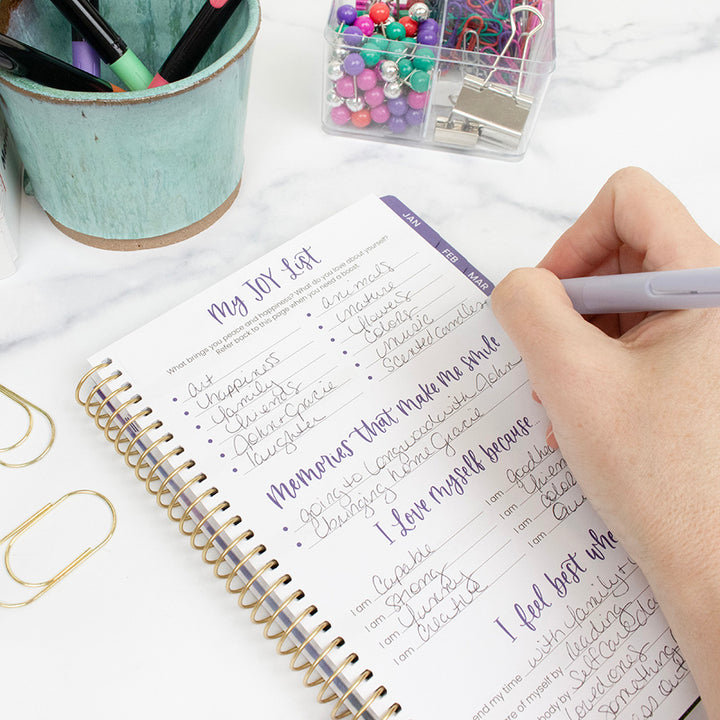 JAN
FEB
MAR
My JOY List
What brings you peace and happiness? What do you love about yourself?
Refer back to this page when you need a boost.
art
happiness
family
friends
John + Gracie
laughter
animals
nature
flowers
colors
music
scented candles
Memories that make me smile
going to Longwood with John
bringing home Gracie
I love myself because...
I am capable
I am strong
I am funky
I am creative
I am good
I am
I am color
I am
I feel best
my time with family +
of myself by reading
by selfcare
loved ones
something